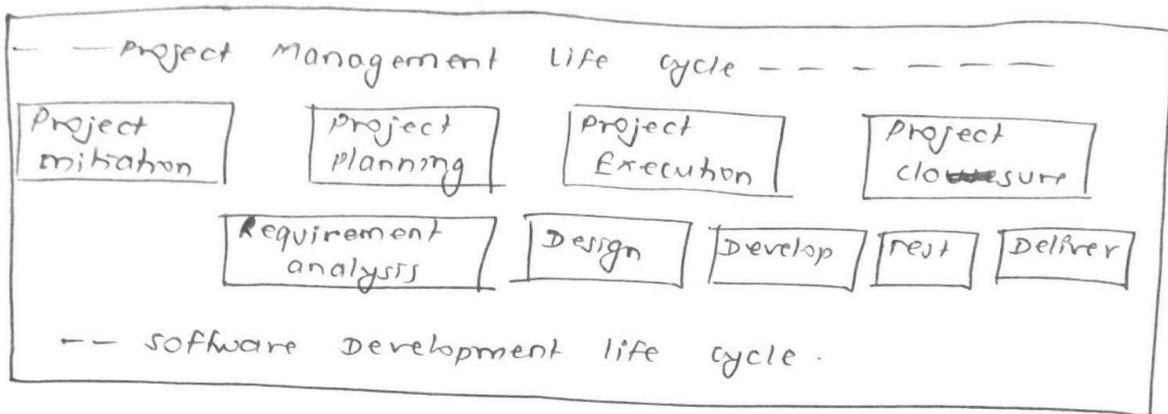 -- Project Management life cycle - - - - - - -
Project
initiation
Project
planning
Project
Execution
Project
closure
Requirement
analysis
Design
Develop
Test
Deliver
-- software Development life cycle.